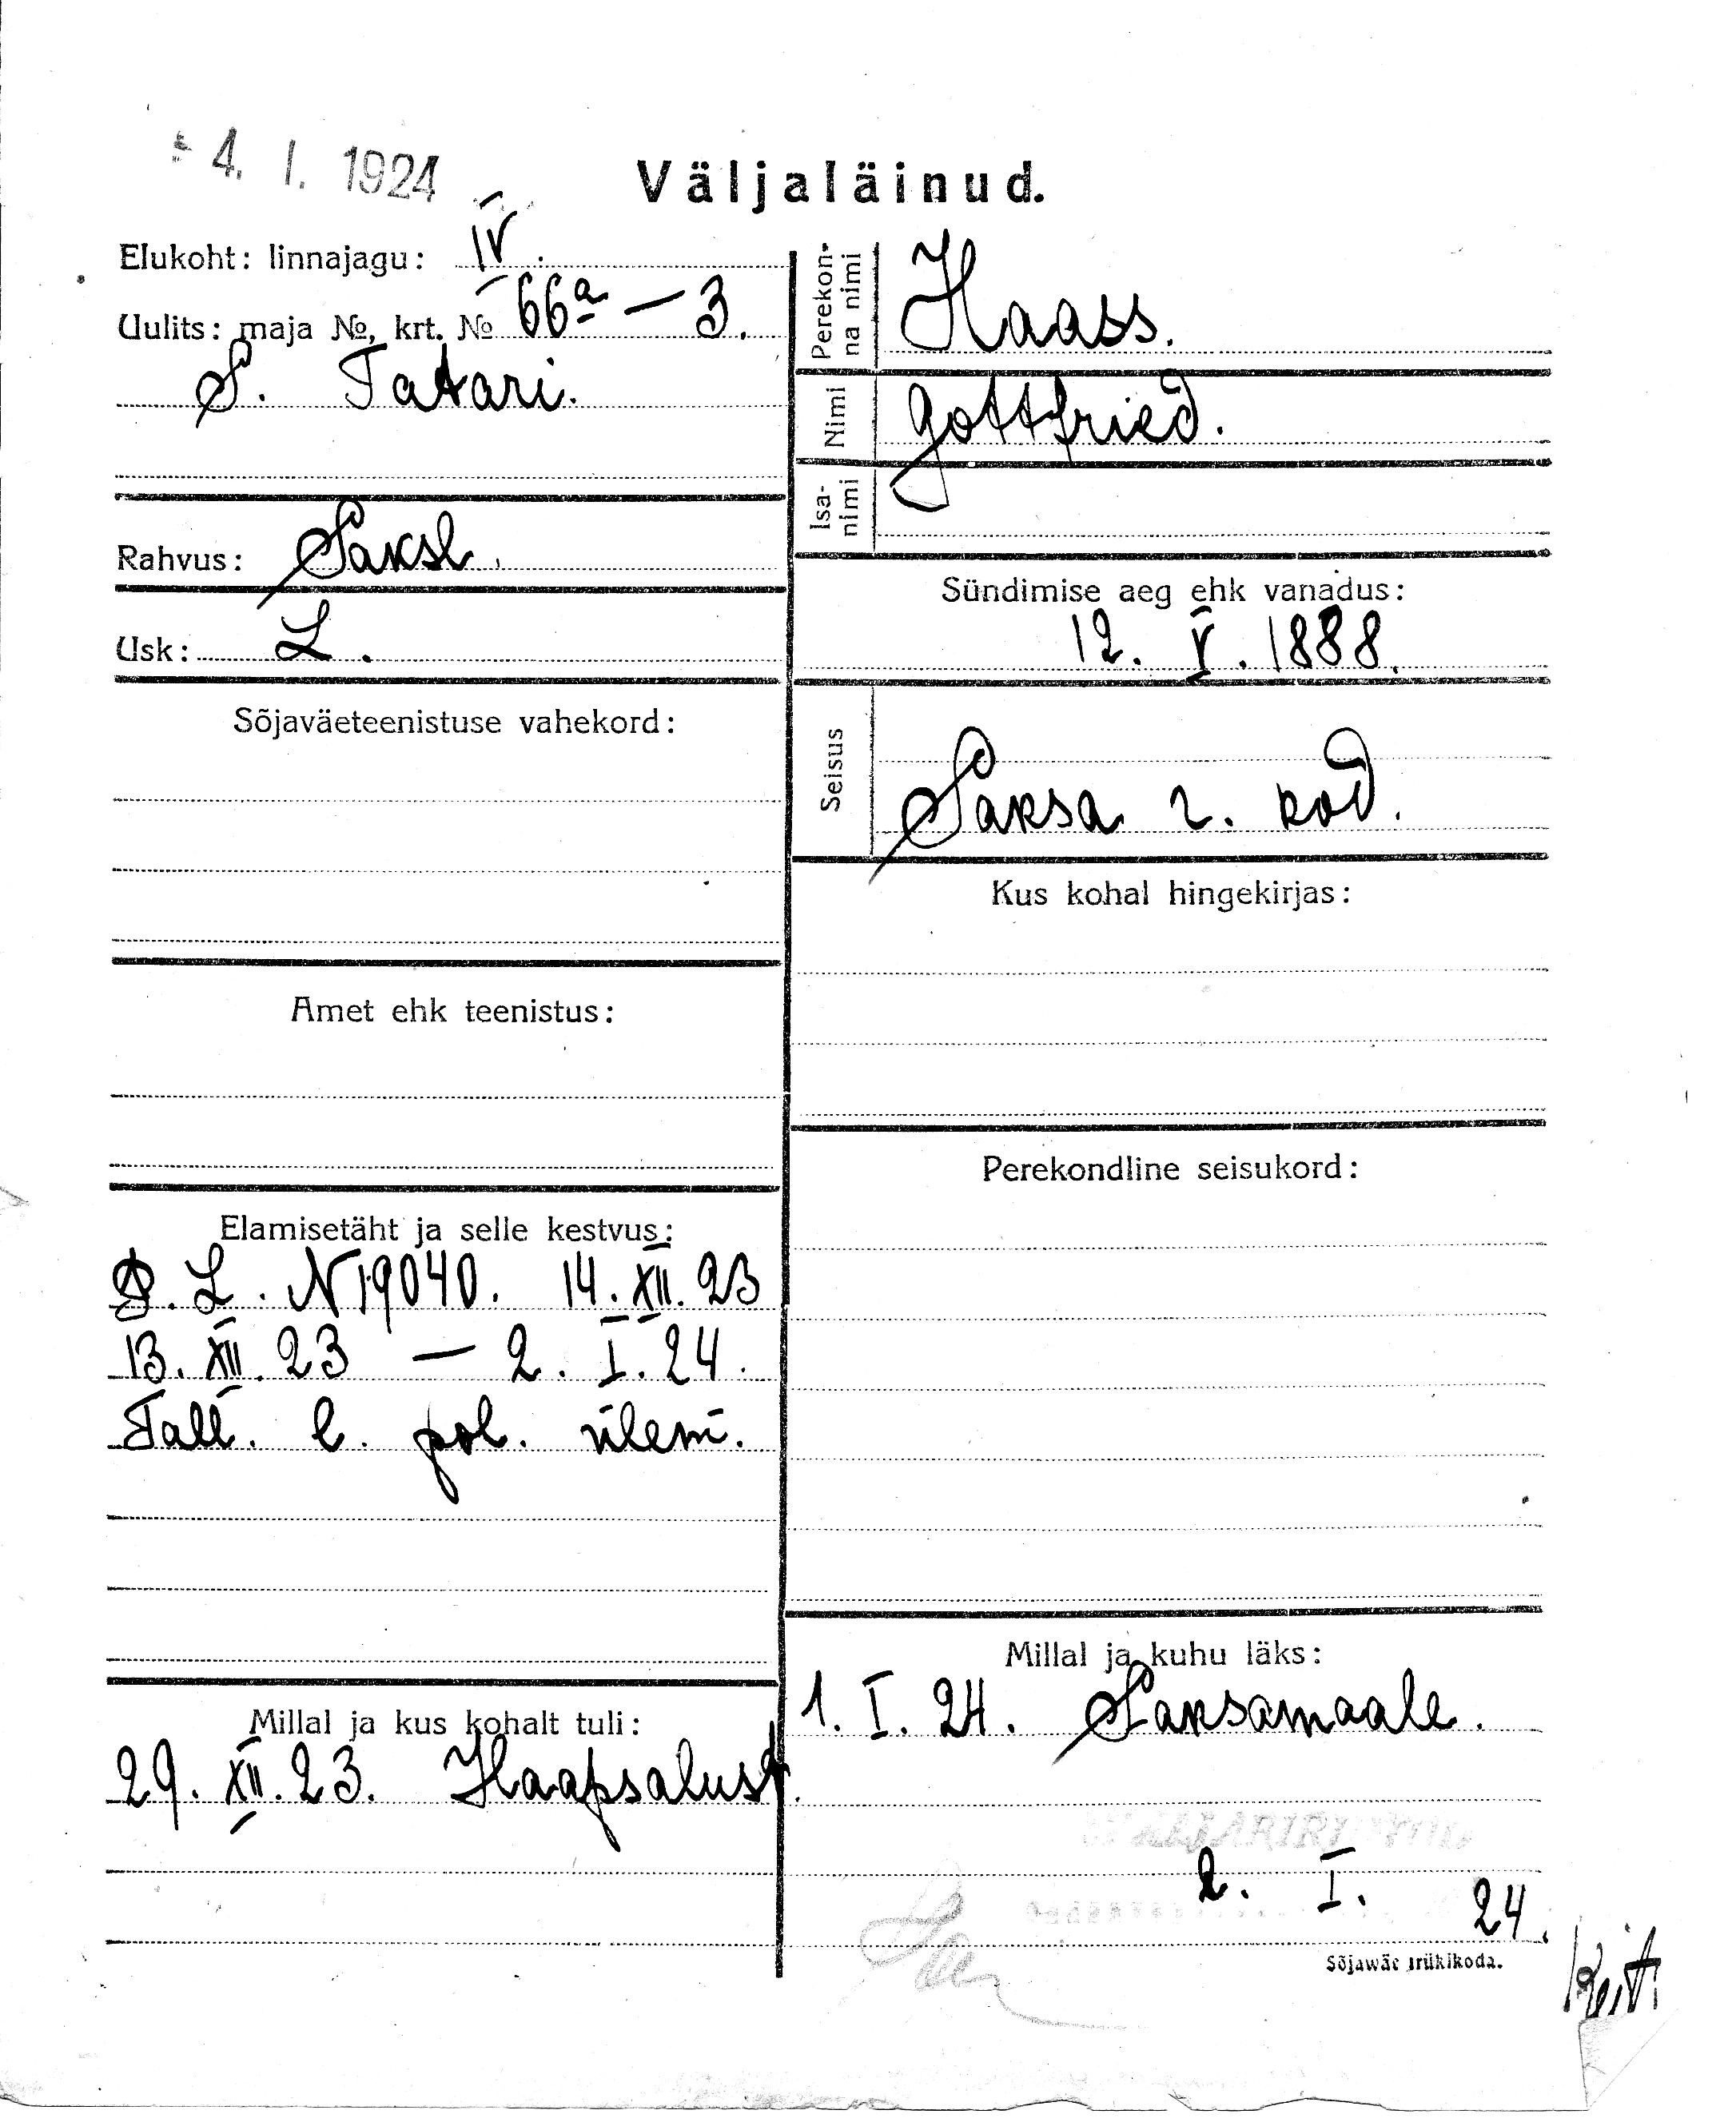 4. I. 1924
Väljaläinud.
Elukoht: linnajagu: IV.
Uulits: maja №, krt. № 66ª — 3.
S. Tatari.
Rahvus: Saksl.
Usk: L.
Sõjaväeteenistuse vahekord:
Amet ehk teenistus:
Elamisetäht ja selle kestvus:
L. N 19040. 14. XII. 23
13. XII. 23 — 2. I. 24.
Tall. l. pol. ülem.
Millal ja kus kohalt tuli:
29. XII. 23. Haapsalust.
Perekon-
na nimi
Haass.
Nimi
Gottfried.
Isa-
nimi
Sündimise aeg ehk vanadus:
12. V. 1888.
Seisus
Saksa r. kod.
Kus kohal hingekirjas:
Perekondline seisukord:
Millal ja kuhu läks:
1. I. 24. Saksamaale.
2. I. 24.
Sõjawäe trükikoda.